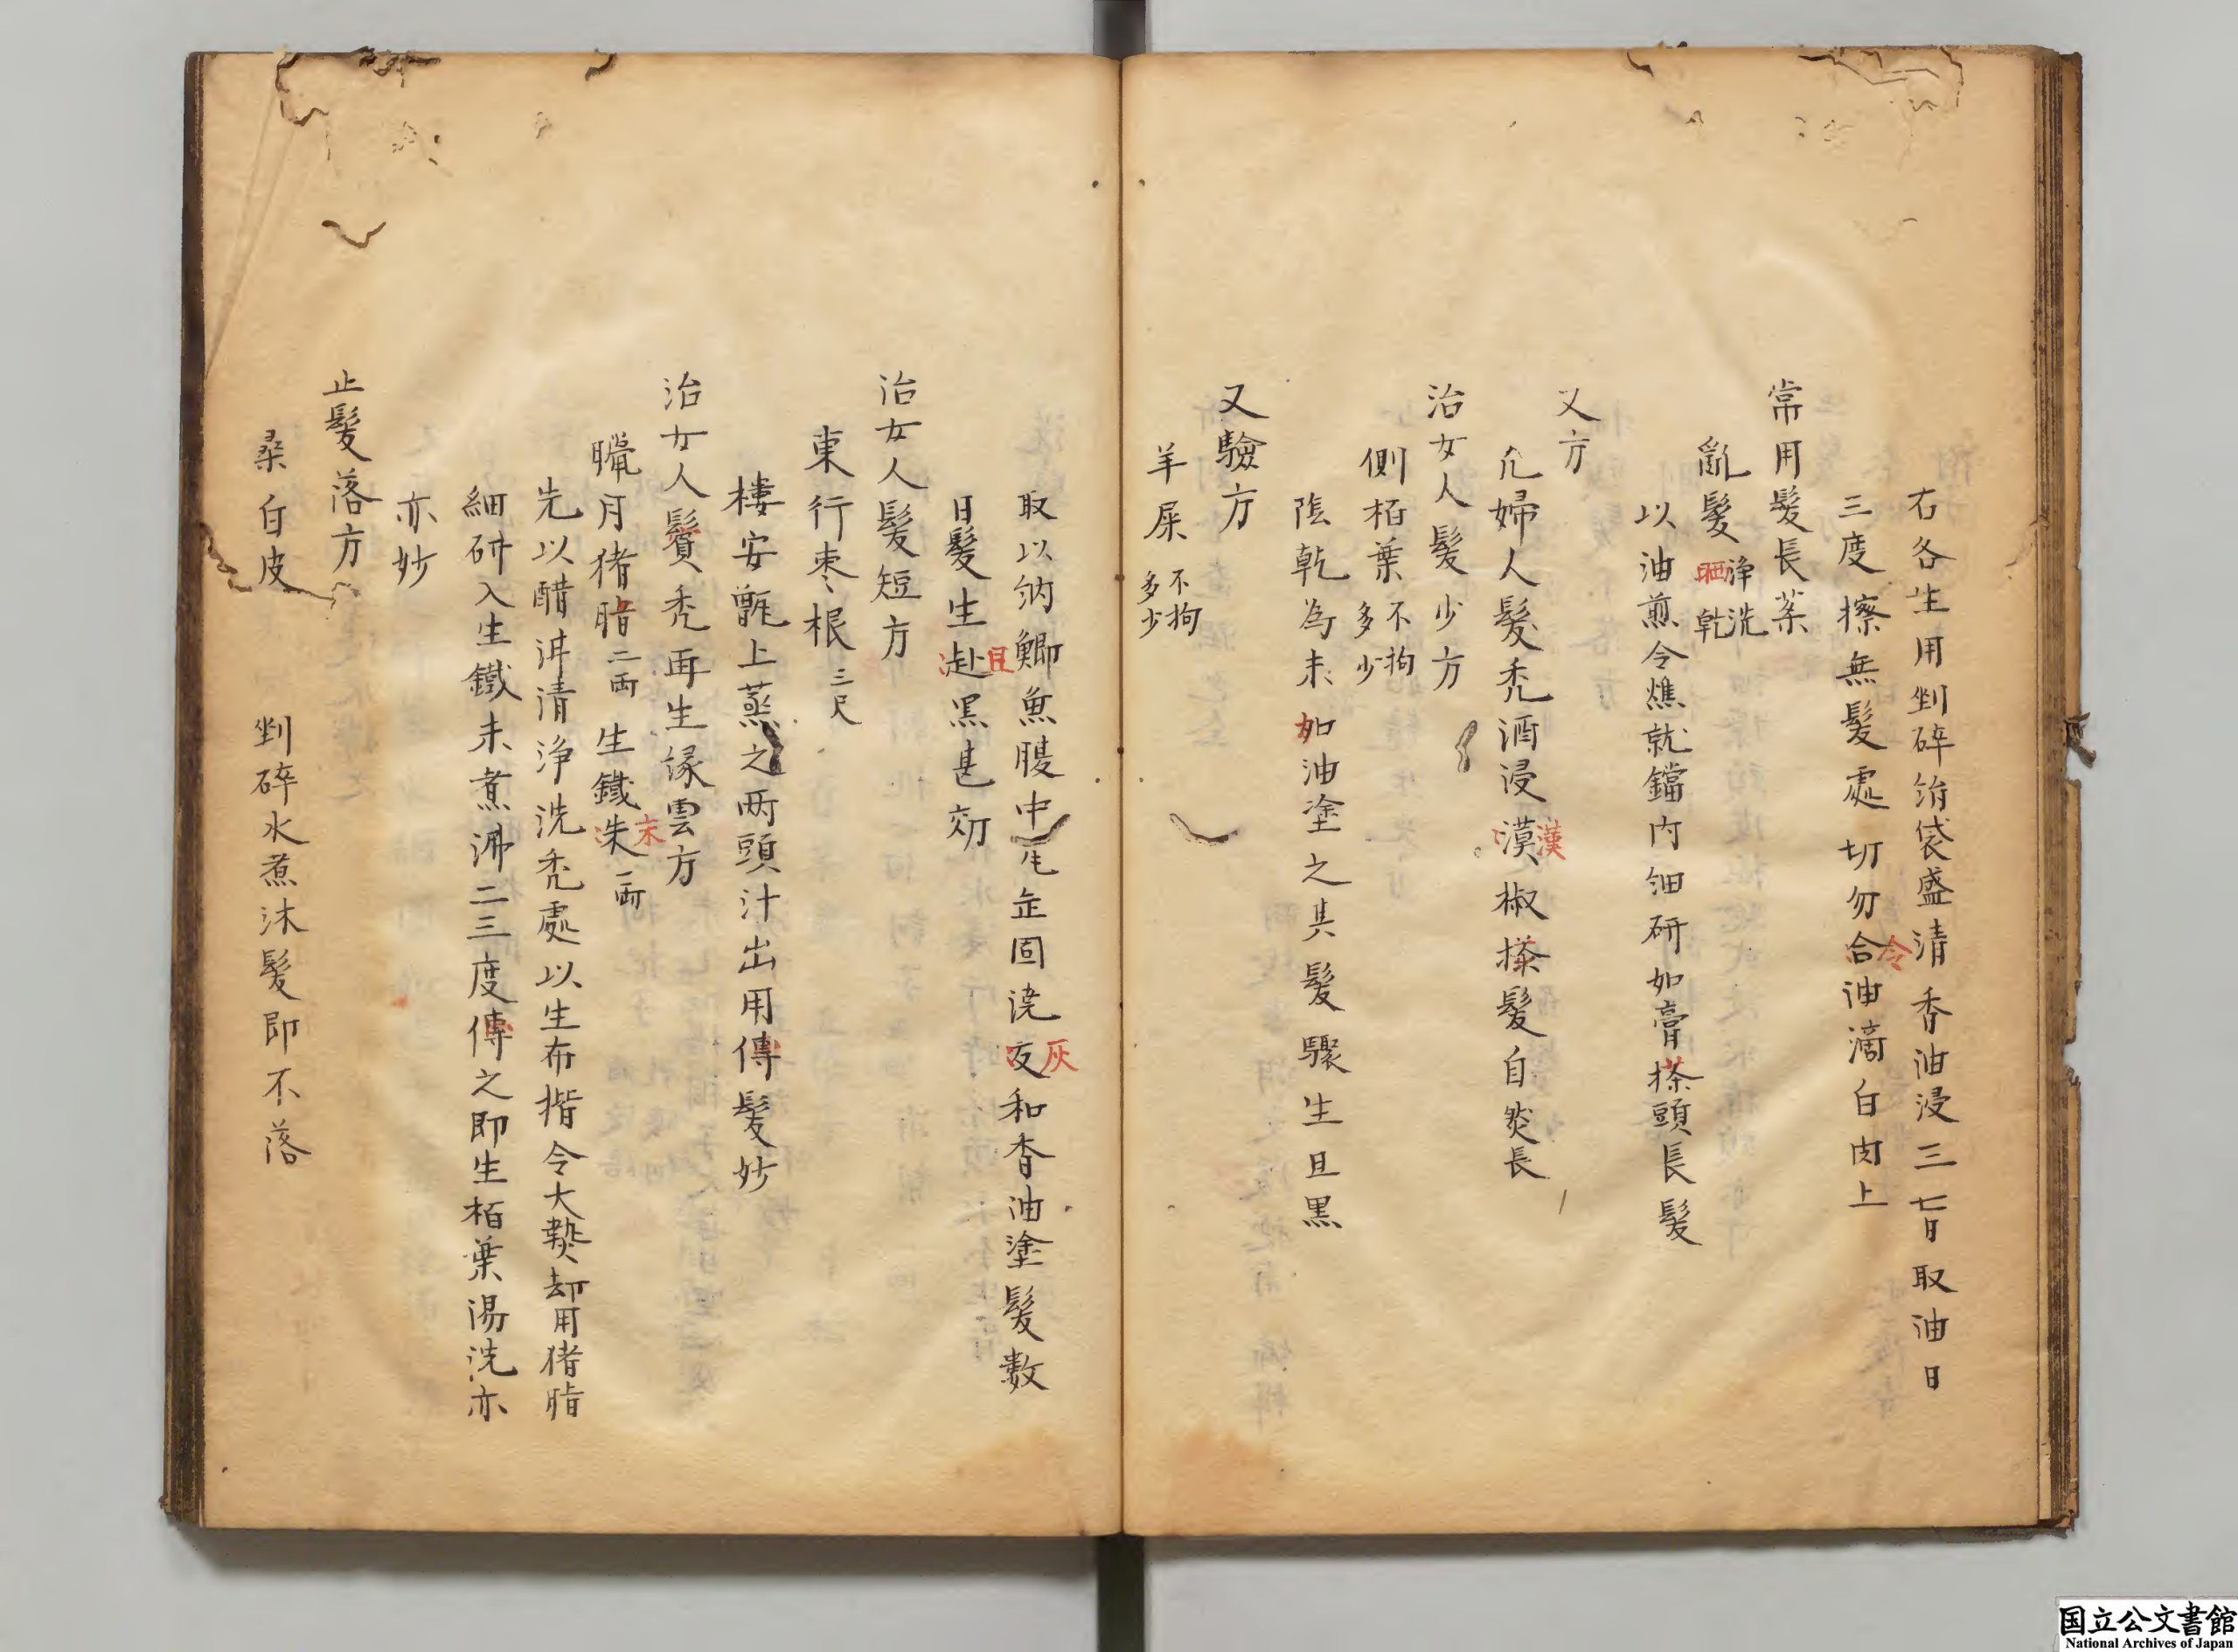 右各生用剉碎絹袋盛清香油浸三七日取油日
三度擦無髮處切勿合油滴白肉上
令
常用髮長藥
亂髮淨洗晒乾
以油煎令燋就鐺内細研如膏搽頭長髮
又方
凢婦人髮禿酒浸漠椒搽髮自然長
漢
治女人髮少方
側栢葉不拘多少
陰乾為末如油塗之其髮驟生且黒
又驗方
羊屎不拘多少
取以納鯽魚腹中瓦缶固燒友和香油塗髮數
灰
日髮生赴黒甚効
且
治女人髮短方
東行枣根三尺
樓安甑上蒸之两頭汁出用傳髮妙
治女人鬢禿再生緑雲方
臘月猪脂二兩生鐵朱一兩
末
先以醋泔清淨洗禿處以生布揩令大熱却用猪脂
細研入生鐵末煮沸二三度傳之即生栢葉湯洗亦
亦妙
止髮落方
桑白皮
剉碎水煮沐髮即不落
国立公文書館
National Archives of Japan